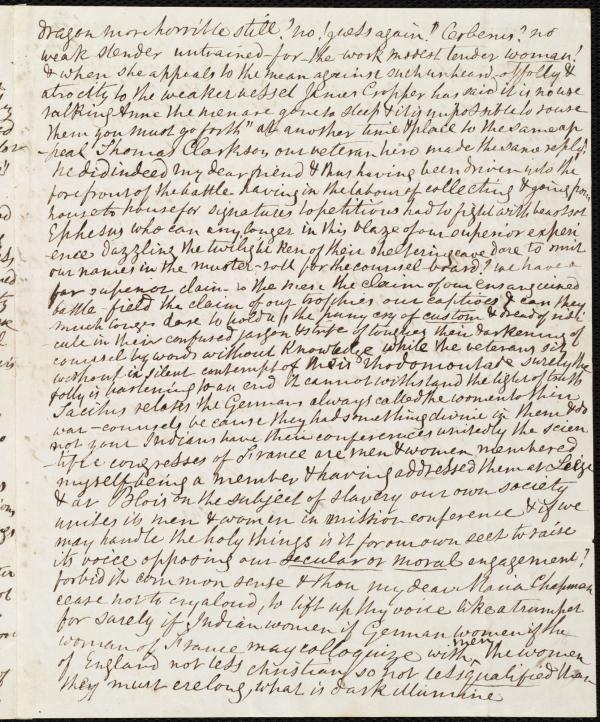 dragon more horrible still? no! guess again! Cerberus? no
weak slender untrained-for-the-work modest tender woman!
& when she appeals to the men against such unheard of folly &
atrocity to the weaker vessel James Cropper has said it is no use
talking Anne the men are gone to sleep & it is impossible to rouse
them you must go forth" at another time & place to the same ap
-peal Thomas Clarkson our veteran hero made the same reply!
he did indeed my dear friend & thus having been driven into the
forefront of the battle having in the labour of collecting & going from
house to house for signatures to petitions had to fight with beasts at
Ephesus who can any longer in this blaze of our superior experi
-ence dazzling the twilight ken of their sheltering cave dare to omit
our names in the muster-roll for the counsel-board? we have a
far superior claim to the men the claim of our ensanguined
battle-field the claim of our trophies our captives & can they
much longer dare to hold up the puny cry of custom & dread of ridi
-cule in their confused jargon & strife of tongues their darkening of
counsel by words without knowledge while the veterans sit
without in silent contempt of their rhodomontade surely the
folly is hastening to an end it cannot withstand the light of truth
Tacitus relates the Germans always called the women to their
war-counsels because they had something divine in them & do
not your Indians have their conferences unitedly the scien
-tific congresses of France are men & women membered
myself being a member & having addressed them at Liege
& at Blois on the subject of slavery our own society
unites its men & women in mission-conference & if we
may handle the holy things is it for our own sect to raise
its voice opposing our secular or moral engagement?
forbid it common sense & thou my dear Maria Chapman
cease not to cry aloud, to lift up thy voice like a trumpet
for surely if Indian women if German women if the
woman of France may colloquize with men the women
of England not less christian so not less qualified than
they must erelong, what is dark illumine